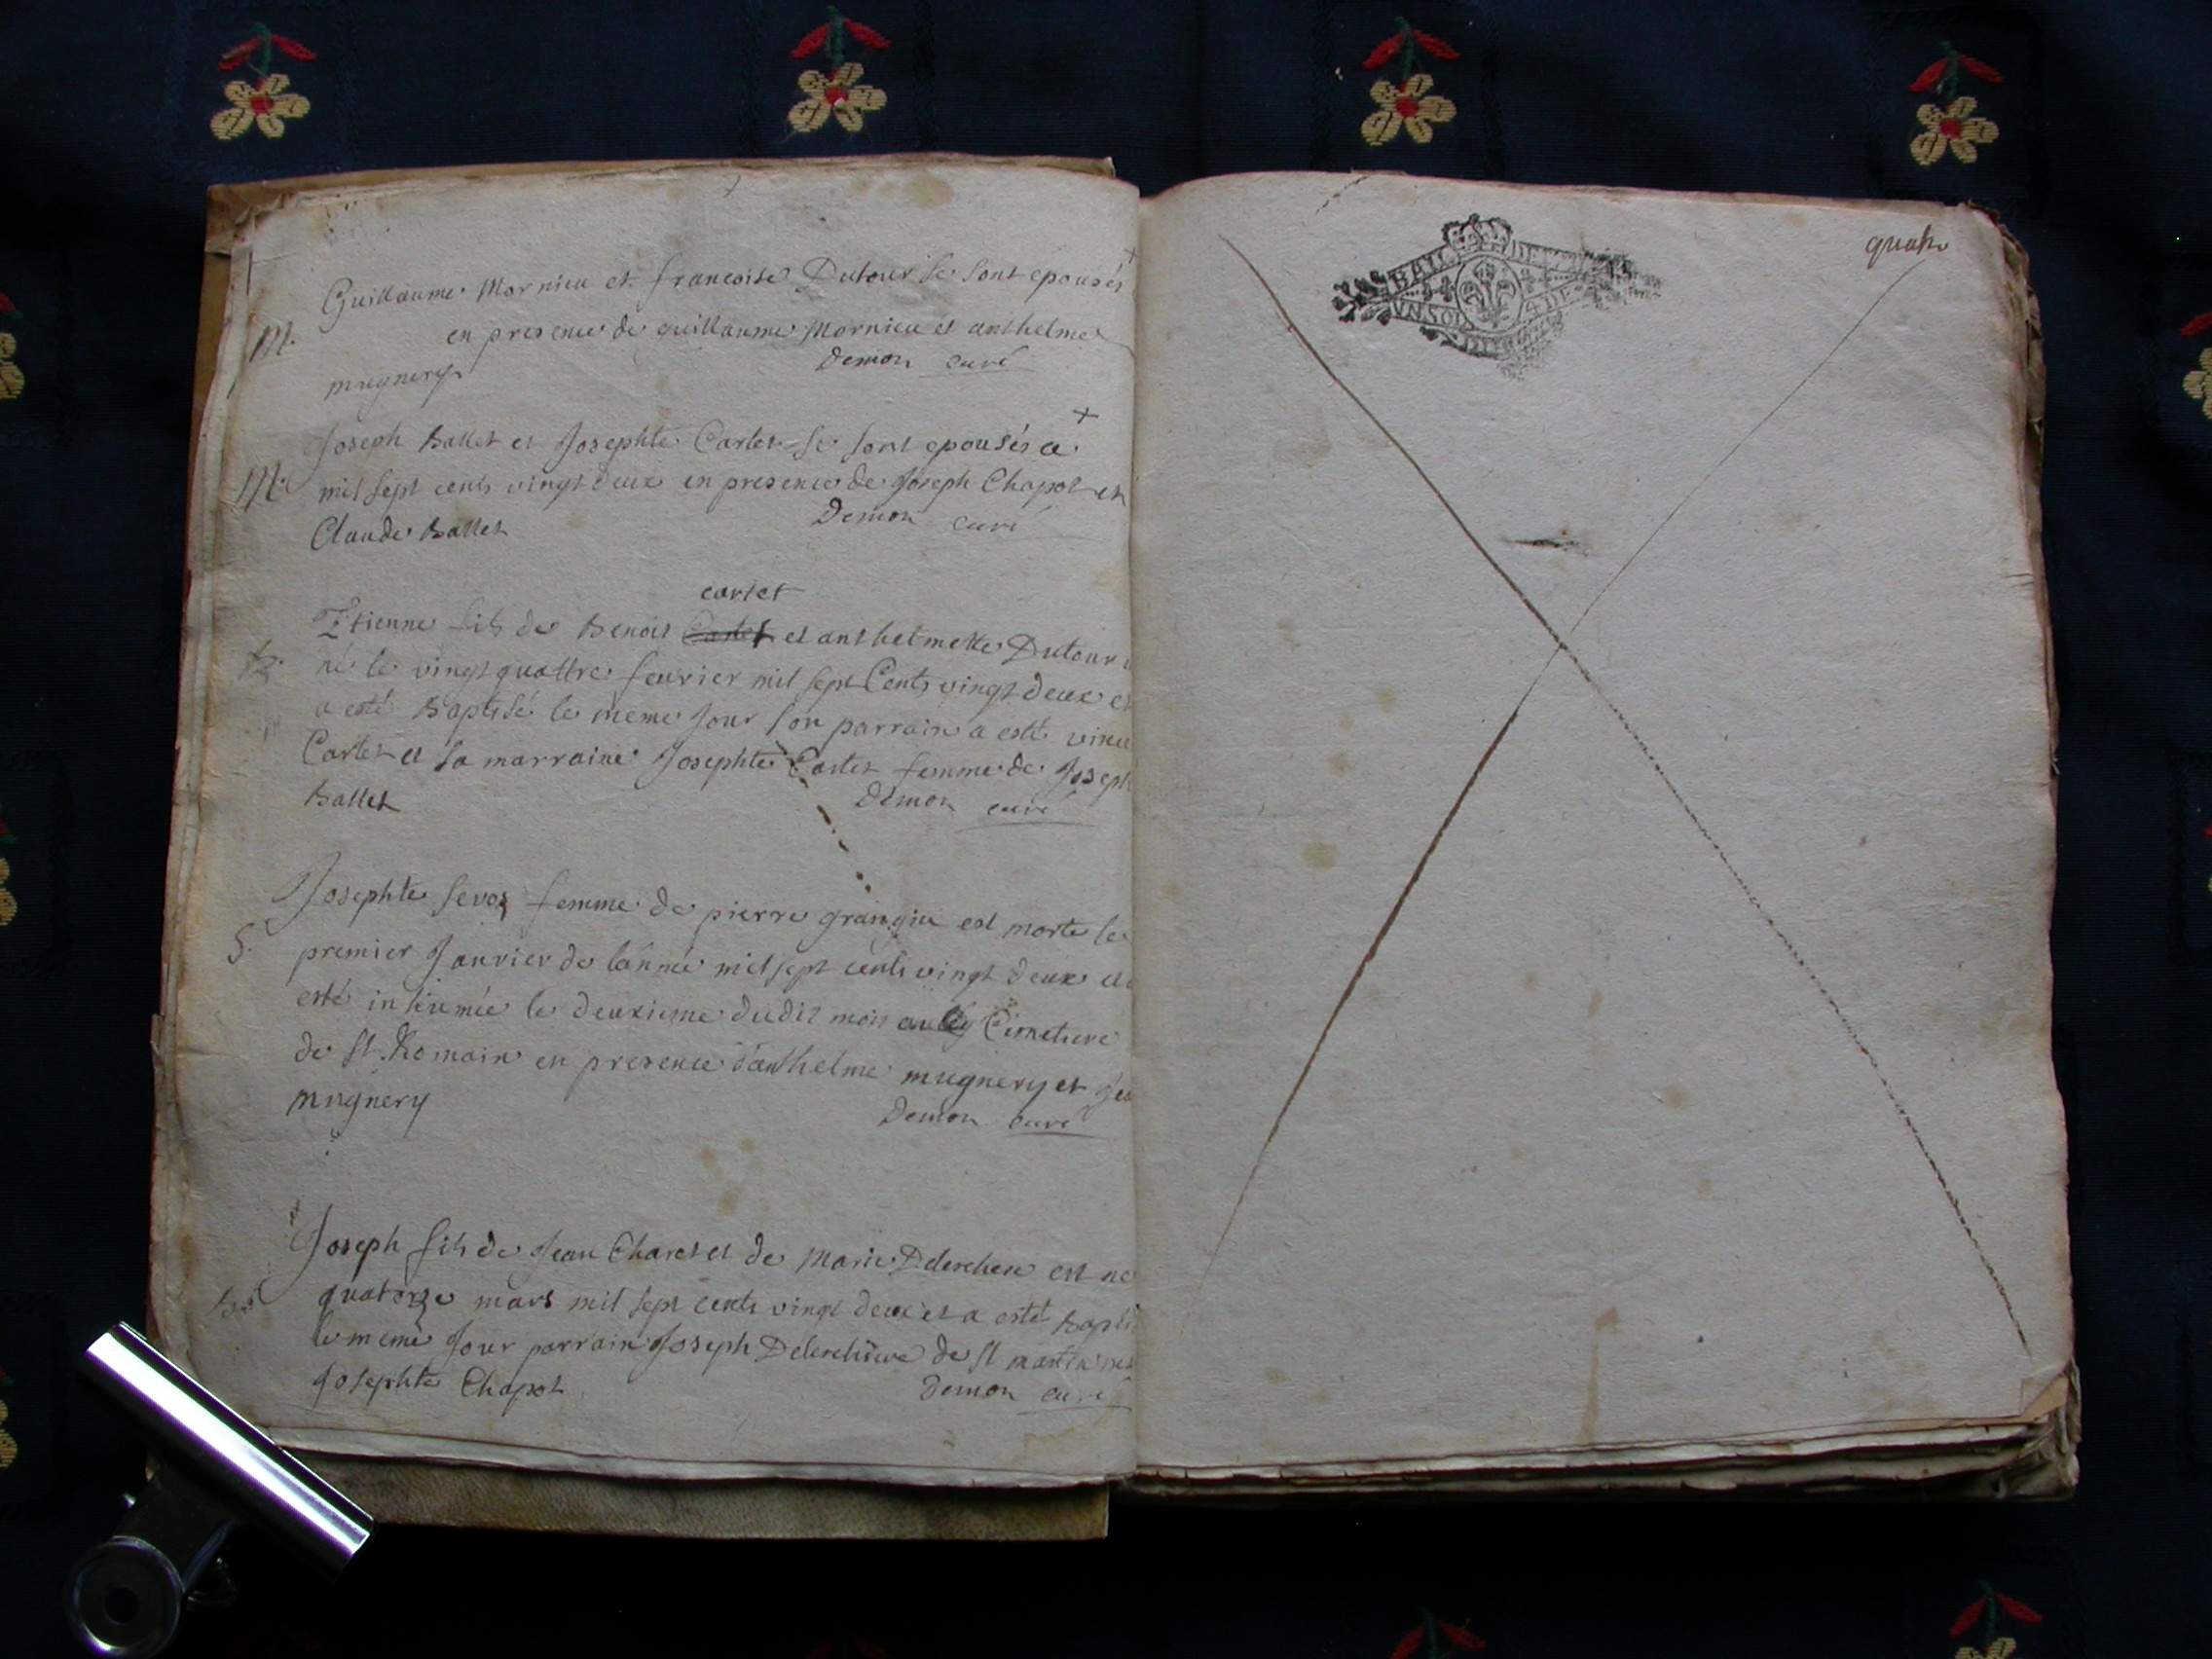 Guillaume Mornieu et francoise Dutour se sont epousés
M.
en presence de guillaume Mornieu et anthelme
mugnery
Demon curé
Joseph Ballet et Josephte Cartet se sont epousés a
M.
mil sept cents vingt deux en presence de Joseph Chapot et
Claude Ballet
Demon curé
cartet
Etienne fils de Benoit Cartet et anthelmette Dutour
B.
né le vingt quattre feurier mil sept Cents vingt deux et
a esté Baptisé le meme Jour son parrain a esté
Cartet et sa marraine Josephte Cartet femme de Joseph
Ballet
Demon curé
Josephte femme de pierre est morte le
S.
premier Janvier de lannée mil sept cents vingt deux et
esté inhumée le deuxieme dudit mois au Cimetiere
de St. Romain en presence danthelme mugnery et
mugnery
Demon curé
Joseph fils de Jean Charet et de Marie est né
B.
quatorze mars mil sept cents vingt deux et a esté
le meme Jour parrain Joseph de St martin
Josephte Chapot
Demon curé
GEN DE
UNSOL 4 DE
quatre